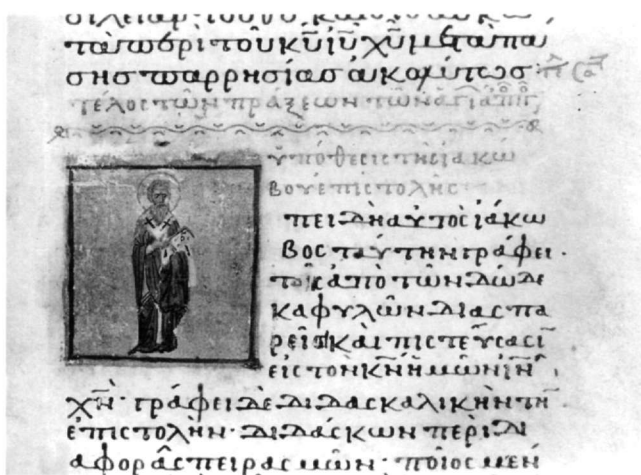 τὰ περὶ τοῦ κ̅υ̅ ἰ̅υ̅ χ̅υ̅ μετὰ πά
σης παρρησίας ἀκωλύτως·
τέλος τῶν πράξεων τῶν
ὑπόθεσις τῆς ἰακώ
βου ἐπιστολῆς
πειδὴ αὐτὸς ἰάκω
βος ταύτην γράφει·
τοῖς ἀπὸ τῶν δώδε
κα φυλῶν διασπα
ρεῖσι καὶ πιστεύσασι
εἰς τὸν κ̅ν̅ ἡμῶν ι̅ν̅
χ̅ν̅· γράφει δὲ διδασκαλικὴν τὴ
ἐπιστολὴν· διδάσκων περὶ δι
αφορᾶς πειρασμῶν· ποῖος μὲν